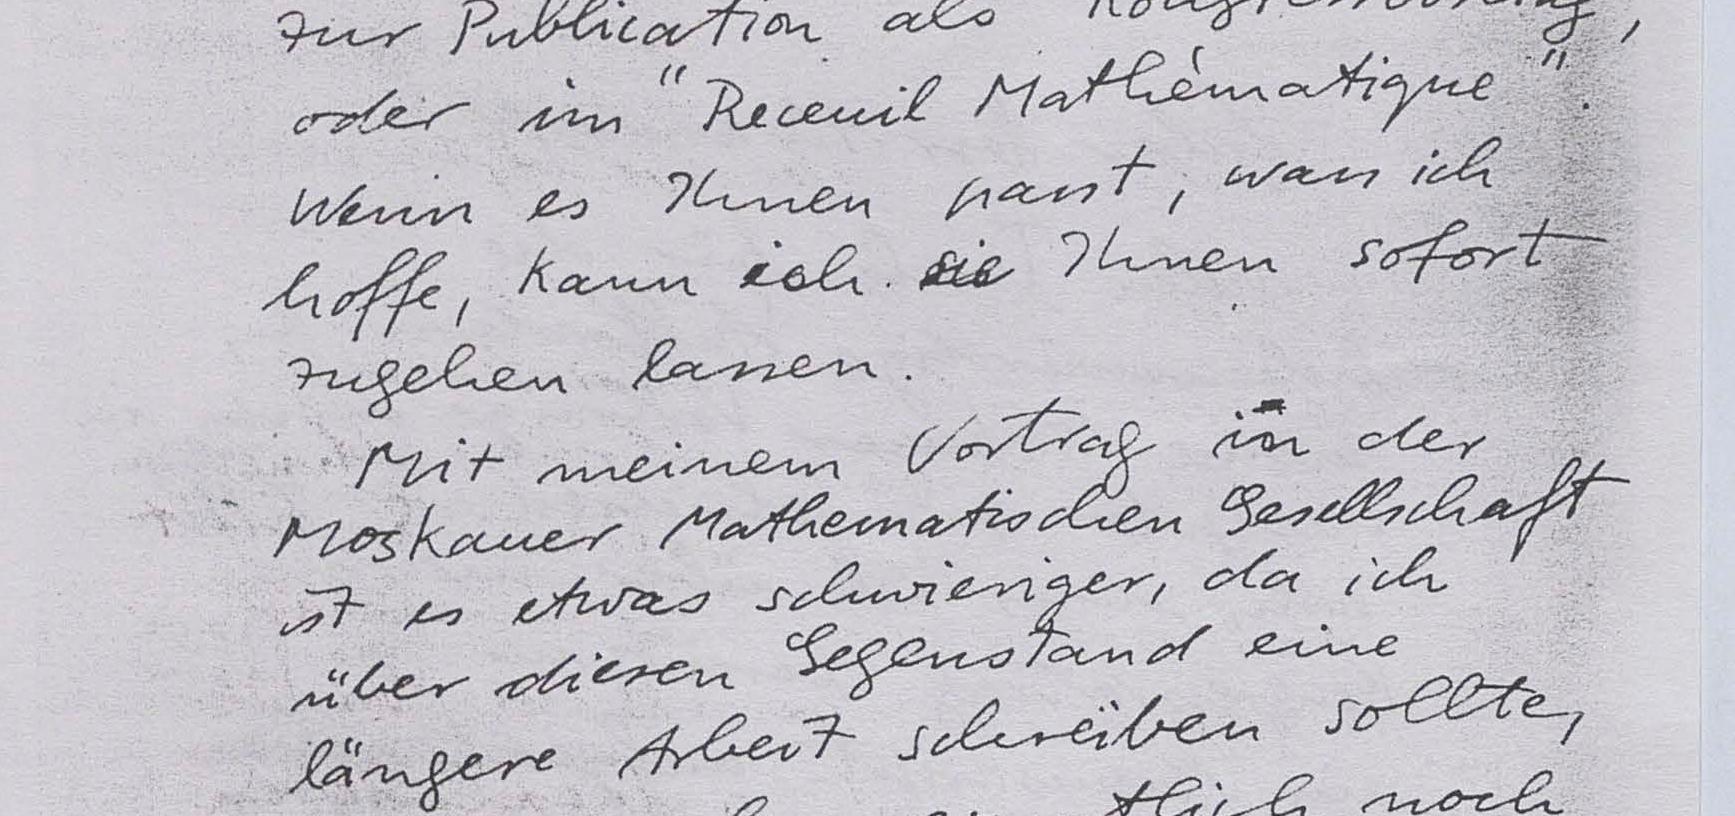 zur Publication als Kongressvortrag,
oder im "Receuil Mathématique".
Wenn es Ihnen passt, was ich
hoffe, kann ich sie Ihnen sofort
zugehen lassen.
Mit meinem Vortrag in der
Moskauer Mathematischen Gesellschaft
ist es etwas schwieriger, da ich
über diesen Gegenstand eine
längere Arbeit schreiben sollte,
noch